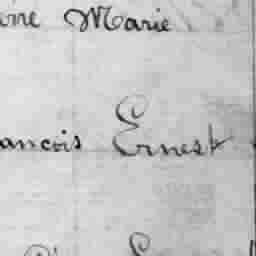 Marie
ancois Ernest